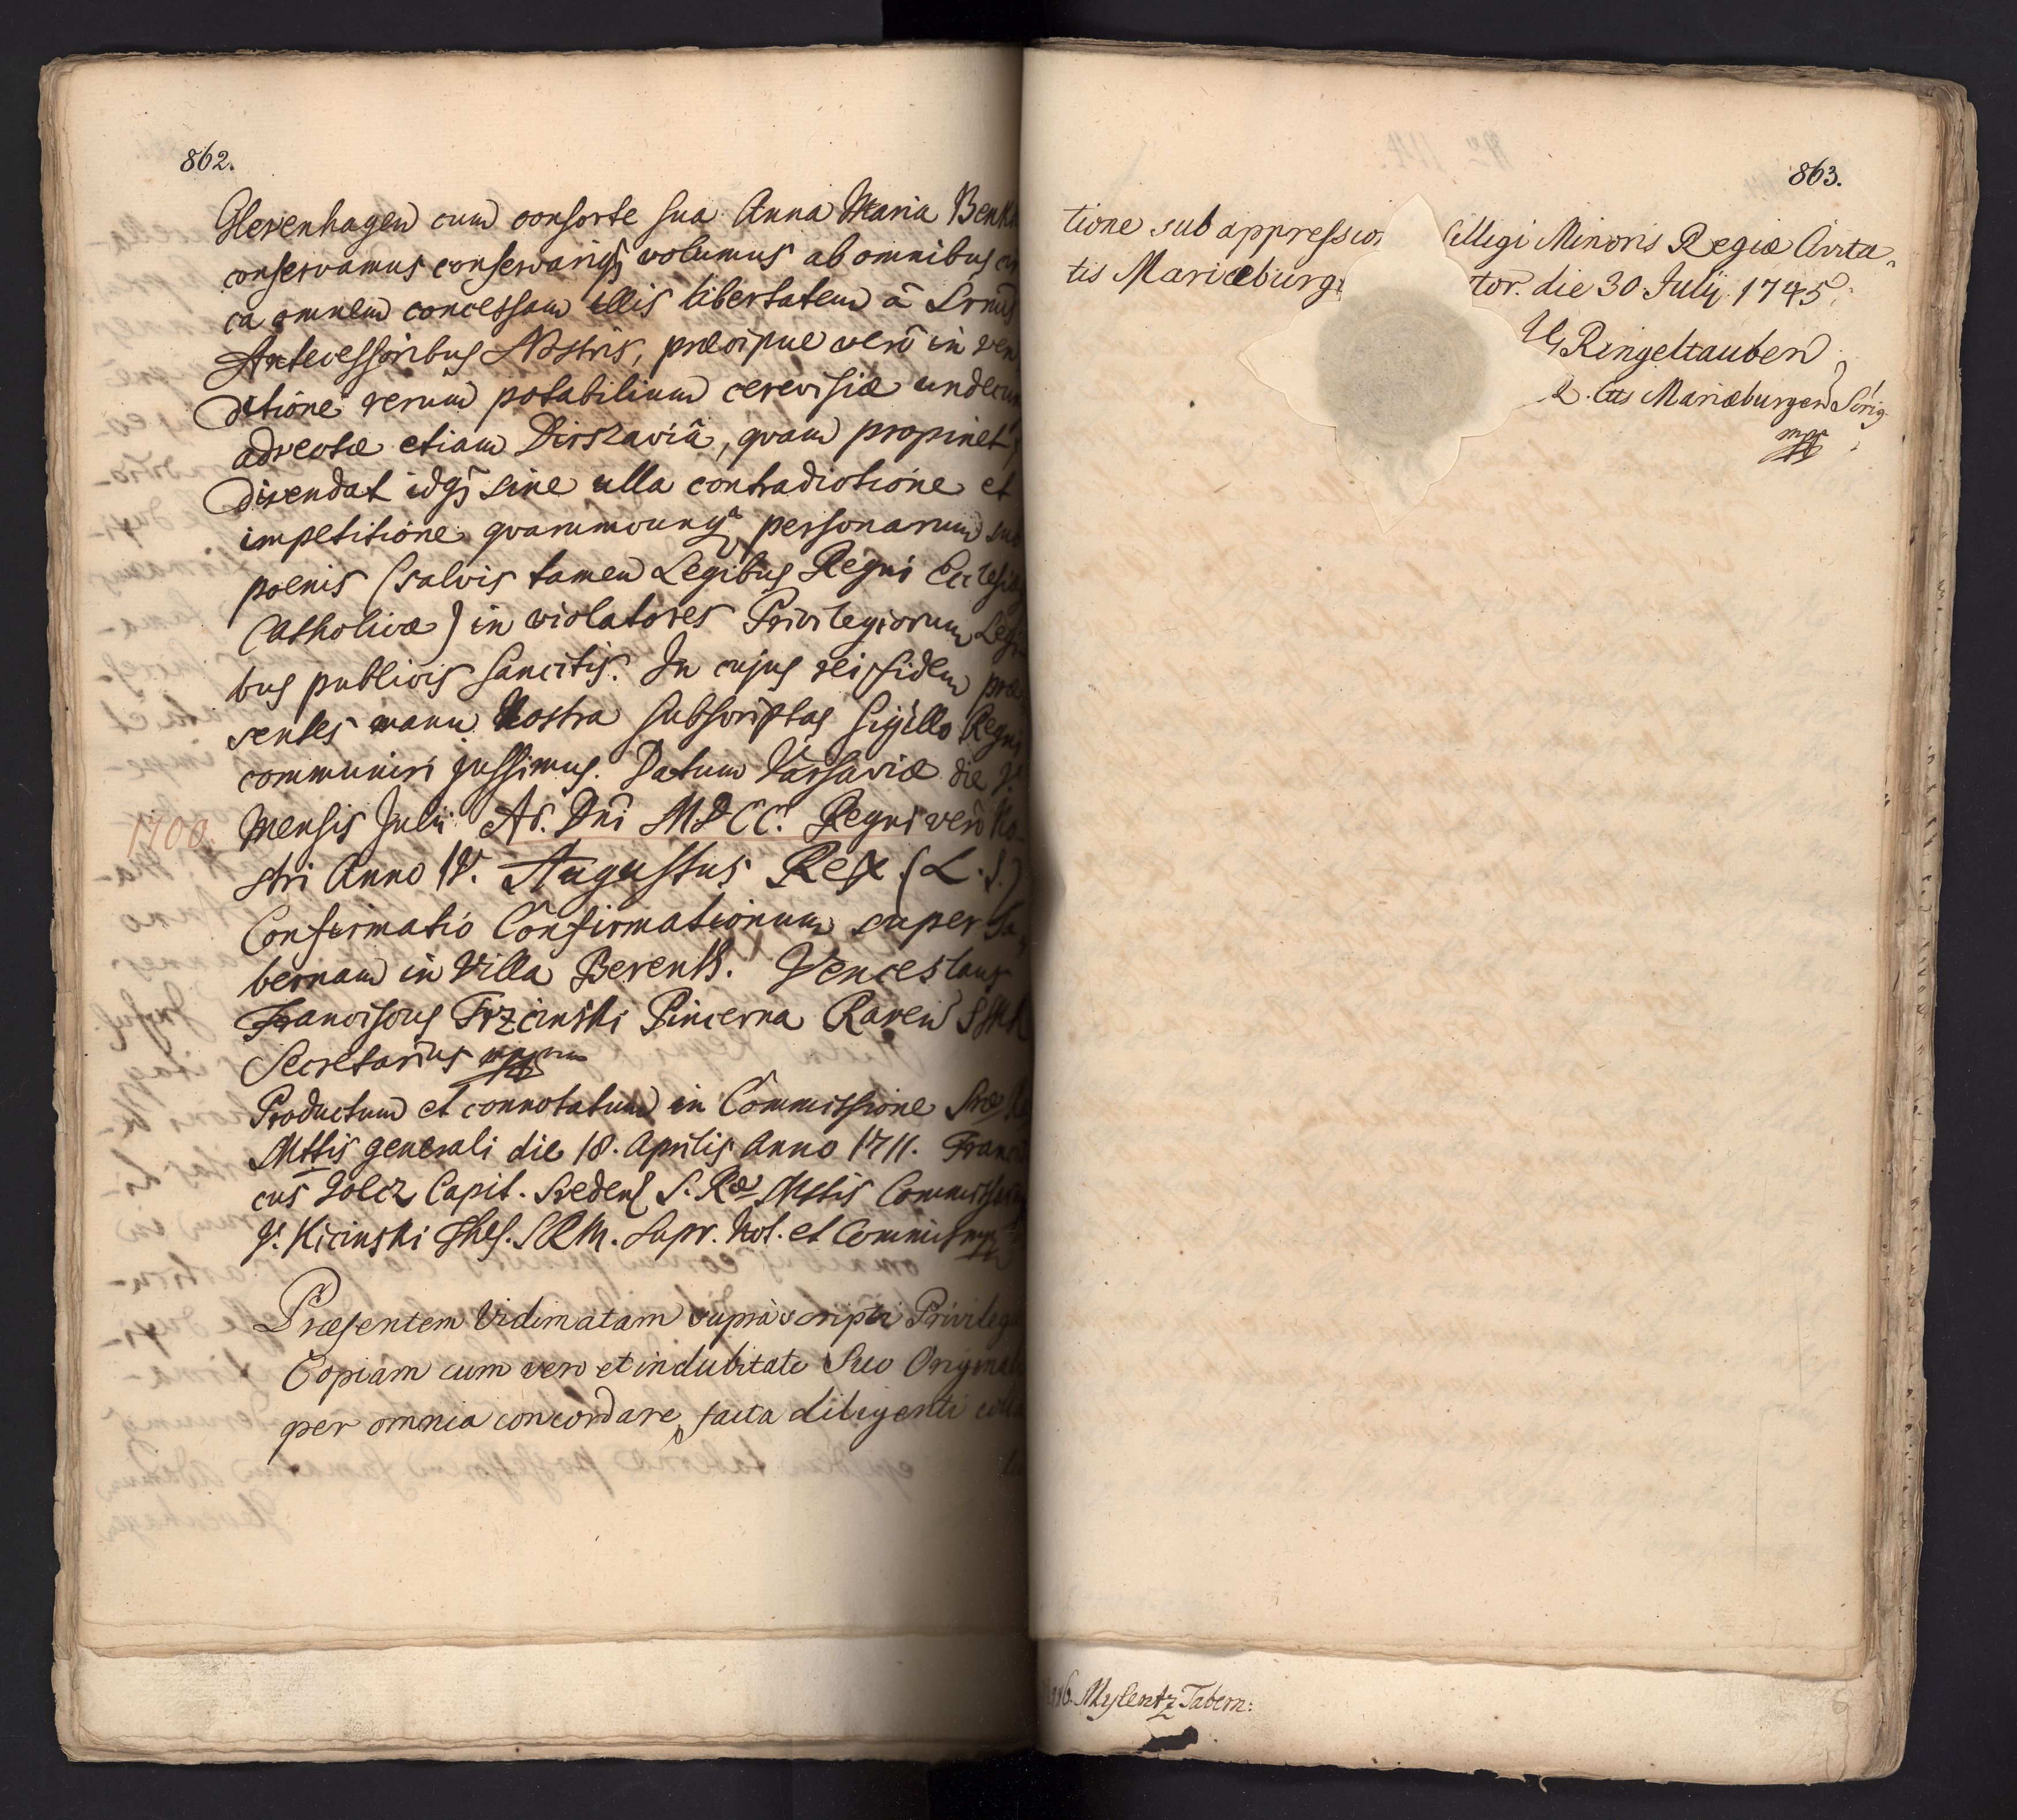 862.
Glevenhagen cum consorte sua Anna Maria
conservamus conservariq; volumus ab omnibus
ca omnem concessam illis libertatem â Srmis
Antecessoribus Nostris, præcipue verò in ven
ditione rerum potabilium cerevisiæ undecun
advectæ etiam Dirsaviâ, qvam propinet
divendat idq; sine ulla contradictione et
impetitione qvarumcunq; personarum sub
poenis (salvis tamen Legibus Regni Ecclesiæ
Catholicæ) in violatores Privilegiorum Legi
bus publicis sancitis. In cujus rei fidem præ
sentes manu Nostra subscriptas Sigillo Regni
communiri jussimus. Datum Varsaviæ die
1700. Mensis Julii Ao. Dni MDCC. Regni verò No
stri Anno IV. Augustus Rex. (L.S.)
Confirmatio Confirmationum super Ta
bernam in Villa Berentk. Venceslaus
Franciscus Trzcinski Pincerna Raven S R M
Secretarius mpp
Productum et connotatum in Commissione Sræ
Mttis generali die 18. Aprilis Anno 1711. Francis
cus Golcz Capit. Sredens S. Ræ Mttis Commissarius
J. Kicinski Thes. SRM. Supr. Not. et Commis mpp
Præsentem Vidimatam supràscripti Privilegii
Copiam cum vero et indubitato Suo Originali
per omnia concordare, facta diligenti colla
863.
tione sub appressio Sigilli Minoris Regiæ Civita-
tis Mariæburg tor. die 30 July. 1745.
Ringeltauben
Mariæburgen
mpp
6. Mylentz Tabern: